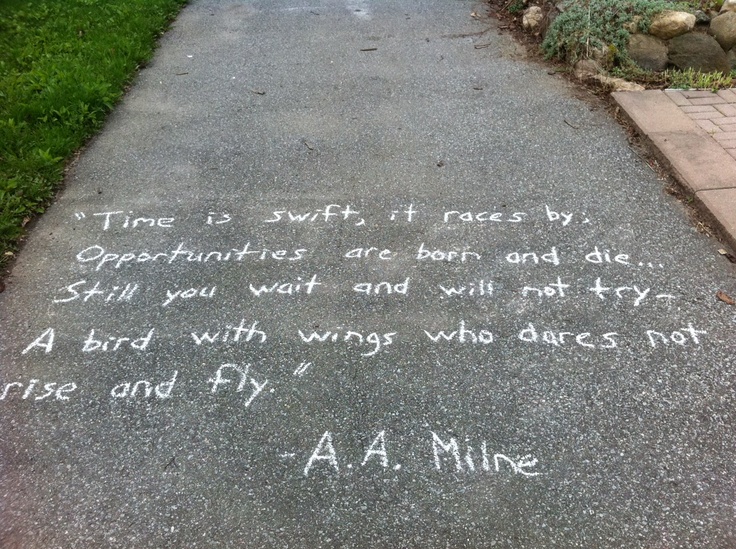 "Time is swift, it races by;
Opportunities are born and die...
Still you wait and will not try-
A bird with wings who dares not
rise and fly."
- A.A. Milne